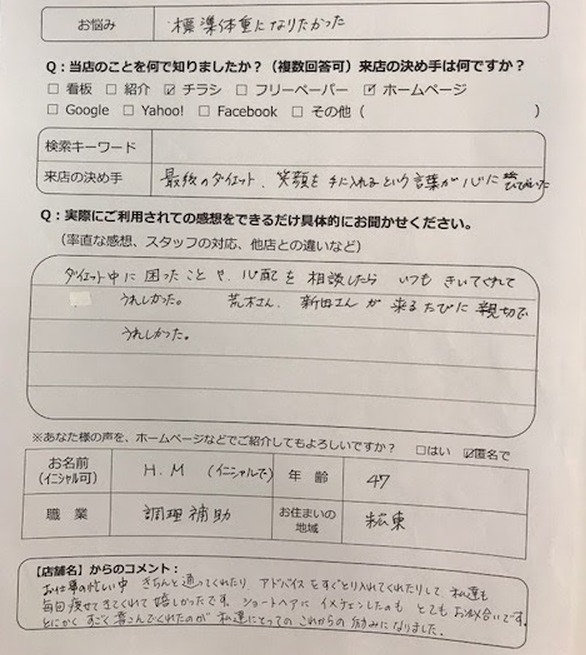 お悩み 標準体重になりたかった
Q：当店のことを何で知りましたか？（複数回答可）来店の決め手は何ですか？
□ 看板 □ 紹介 ☑ チラシ □ フリーペーパー ☑ ホームページ
□ Google □ Yahoo! □ Facebook □ その他（ ）
検索キーワード
来店の決め手 最後のダイエット、笑顔を手に入れるという言葉が心に
Q：実際にご利用されての感想をできるだけ具体的にお聞かせください。
（率直な感想、スタッフの対応、他店との違いなど）
ダイエット中に困ったことや、心配を相談したら いつもきいてくれて
うれしかった。 荒木さん、新田さんが来るたびに親切で
うれしかった。
※あなた様の声を、ホームページなどでご紹介してもよろしいですか？ □はい ☑匿名で
お名前 （イニシャル可） H.M （イニシャルで） 年 齢 47
職 業 調理補助 お住まいの地域
【店舗名】からのコメント：
お仕事の忙しい中 きちんと通ってくれたり アドバイスをすぐとり入れてくれたりして 私達も
毎回痩せてきてくれて嬉しかったです。ショートヘアにイメチェンしたのも とてもお似合いです。
とにかくすごく喜んでくれたのが私達にとってのこれからの励みになりました。